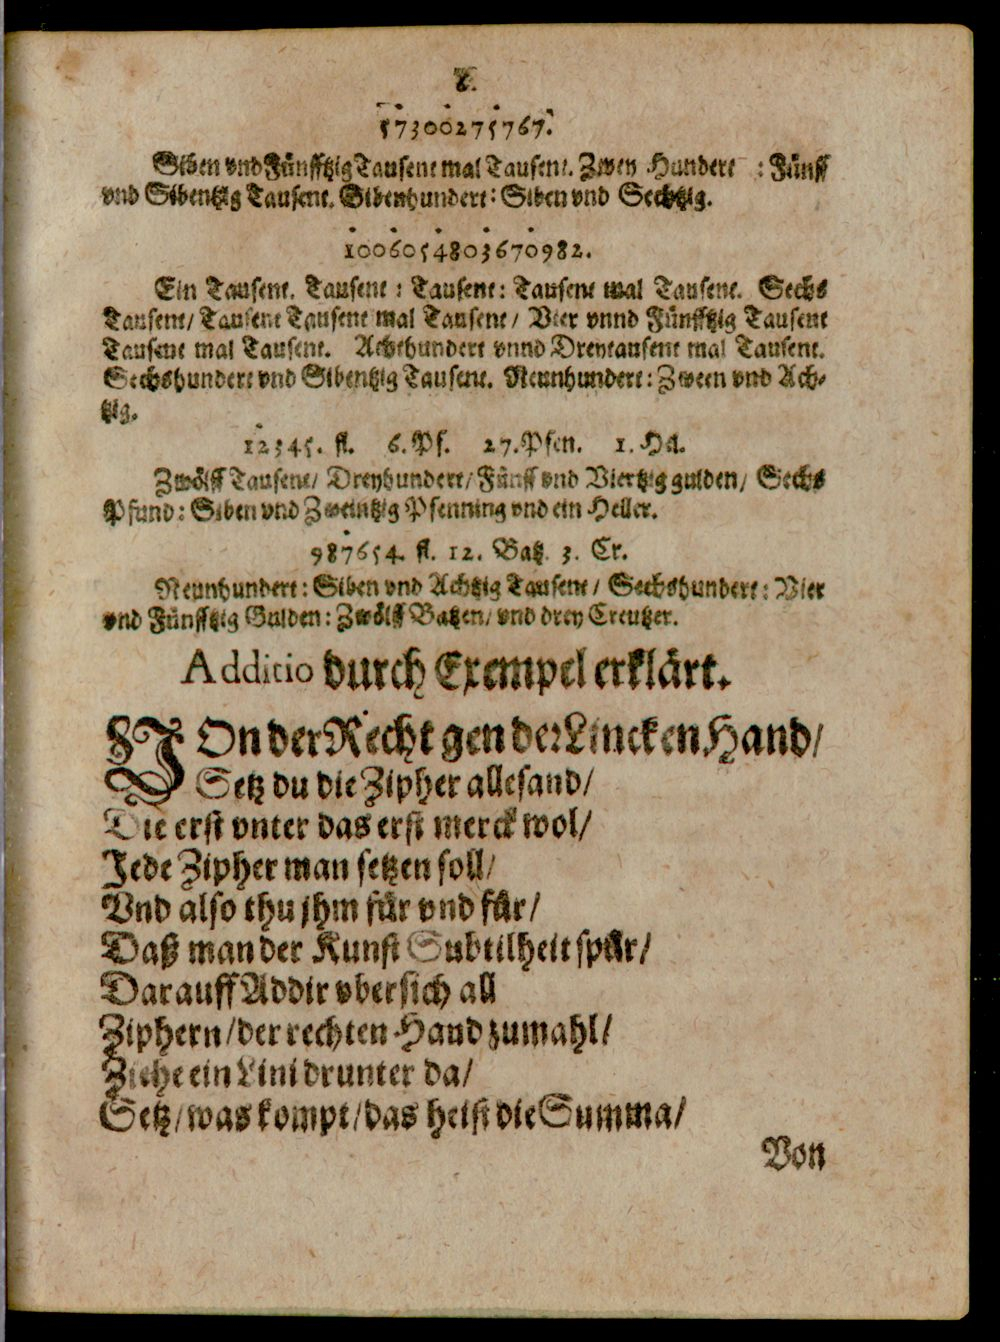 8.
57300275767.
Siben vnd Fünfftzig Tausent mal Tausent. Zwey Hundert : Fünff
vnd Sibentzig Tausent. Sibenhundert: Siben vnd Sechtzig.
1006054803670982.
Ein Tausent. Tausent : Tausent: Tausent mal Tausent. Sechs
Tausent/ Tausent Tausent mal Tausent/ Vier vnnd Fünfftzig Tausent
Tausent mal Tausent. Achthundert vnnd Dreytausent mal Tausent.
Sechshundert vnd Sibentzig Tausent. Neunhundert: Zween vnd Ach-
tzig.
12345. fl. 6. Pf. 27. Pfen. 1. Hel.
Zwölff Tausent/ Dreyhundert/ Fünff vnd Viertzig gulden/ Sechs
Pfund: Siben vnd Zweintzig Pfenning vnd ein Heller.
987654. fl. 12. Batz. 3. Cr.
Neunhundert: Siben vnd Achtzig Tausent/ Sechshundert: Vier
vnd Fünfftzig Gulden: Zwölff Batzen/ vnd drey Creutzer.
Additio durch Exempel erklärt.
VOn der Recht gen der Lincken Hand/
Setz du die Zipher allesand/
Die erst vnter das erst merck wol/
Jede Zipher man setzen soll/
Vnd also thu jhm für vnd für/
Daß man der Kunst Subtilheit spür/
Darauff Addir vbersich all
Ziphern/ der rechten Hand zumahl/
Ziehe ein Lini drunter da/
Setz/ was kompt/ das heist die Summa/
Von